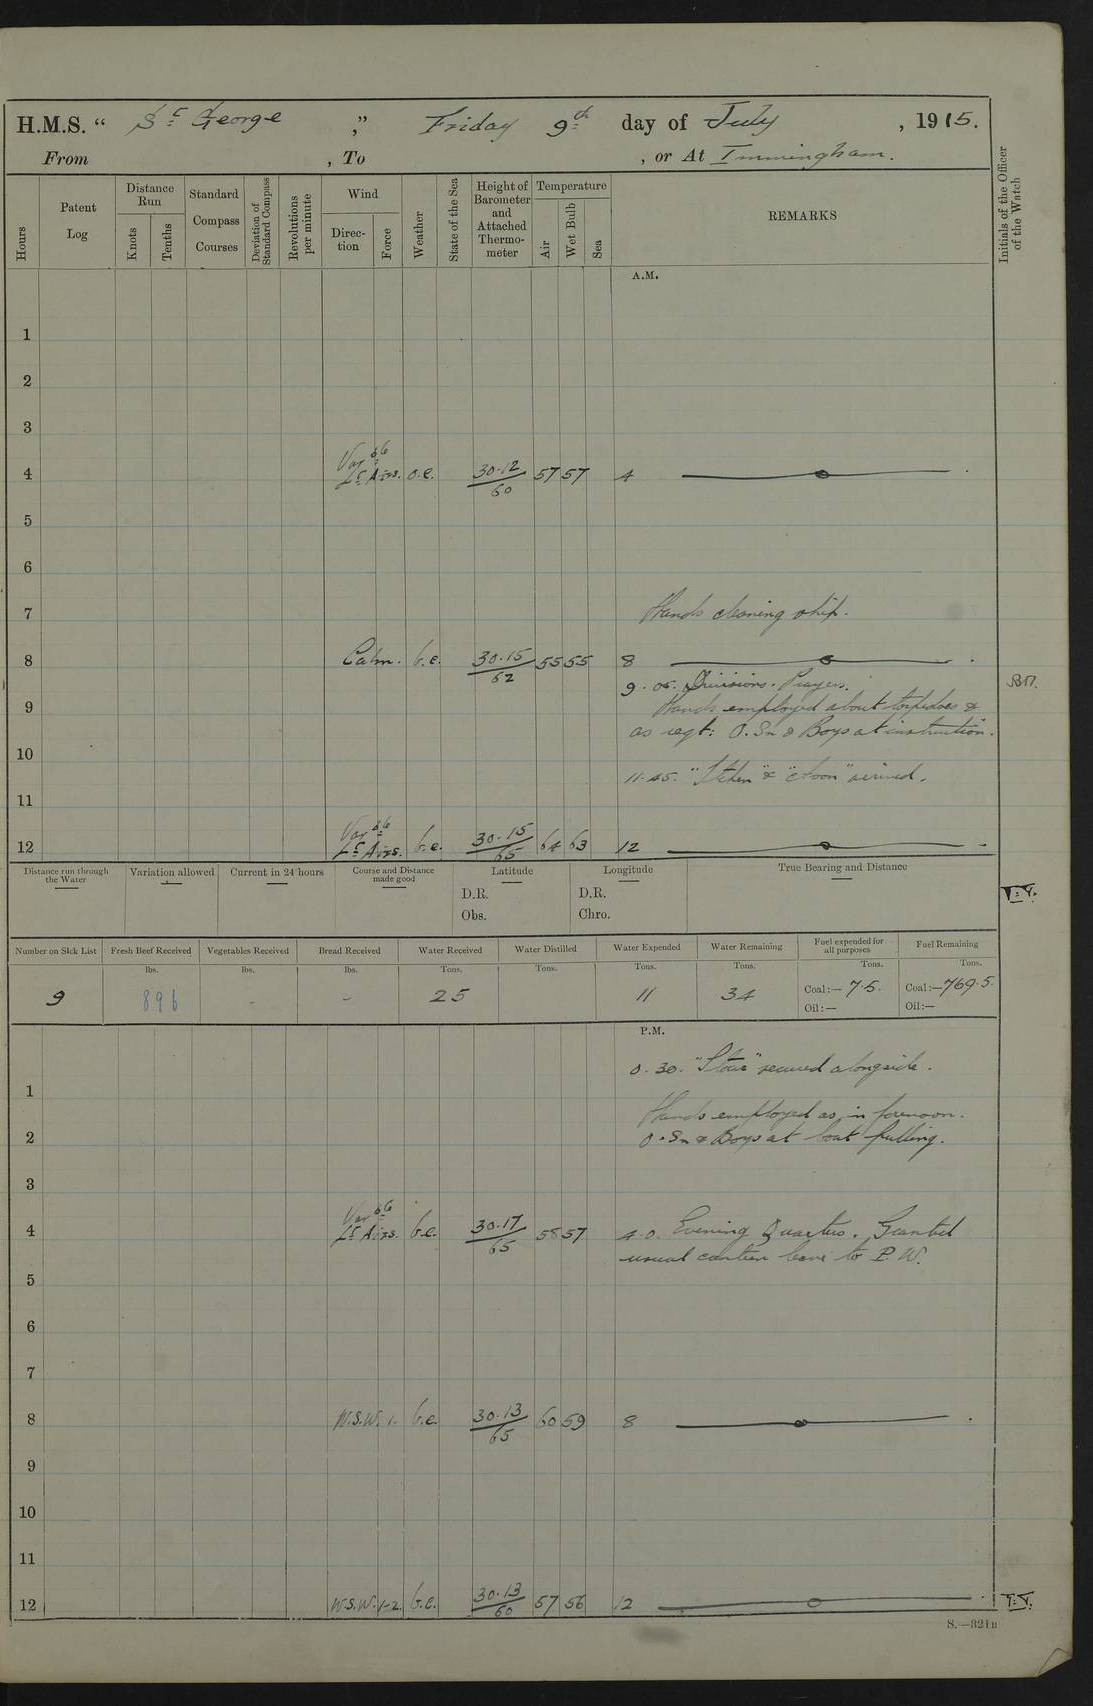 H.M.S. “ St George ,” Friday 9th day of July , 1915.
From , To , or At Immingham.
Hours
Patent Log
Distance Run
Knots
Tenths
Standard Compass Courses
Deviation of Standard Compass
Revolutions per minute
Wind
Direc-tion
Force
Weather
State of the Sea
Height of Barometer and Attached Thermo-meter
Temperature
Air
Wet Bulb
Sea
REMARKS
Initials of the Officer of the Watch
A.M.
1
2
3
4 Var ble Lt Airs. o.c. 30.12/60 57 57 4
5
6
7 Hands cleaning ship.
8 Calm. b.c. 30.15/62 55 55 8
9.05. Divisions. Prayers.
9 Hands employed about torpedoes &
as reqt: O.Sn & Boys at instruction.
10
11.45. "Itchen" & "Doon" arrived.
11
12 Var ble Lt Airs. b.c. 30.15/65 64 63 12
Distance run through the Water
Variation allowed
Current in 24 hours
Course and Distance made good
Latitude
D.R.
Obs.
Longitude
D.R.
Chro.
True Bearing and Distance
Number on Sick List
Fresh Beef Received
Vegetables Received
Bread Received
Water Received
Water Distilled
Water Expended
Water Remaining
Fuel expended for all purposes
Fuel Remaining
lbs. lbs. lbs. Tons. Tons. Tons. Tons. Tons. Tons.
9 896 - - 25 11 34 Coal:— 7.5. Coal:—769.5.
Oil:— Oil:—
P.M.
0.30. "Stour" secured alongside.
1
Hands employed as in forenoon.
2 O.Sn & Boys at boat pulling.
3
4 Var ble Lt Airs. b.c. 30.17/65 58 57 4.0. Evening Quarters. Granted
usual canteen leave to P.W.
5
6
7
8 W.S.W. 1. b.c. 30.13/65 60 59 8
9
10
11
12 W.S.W. 1-2. b.c. 30.13/60 57 56 12
S.—321B